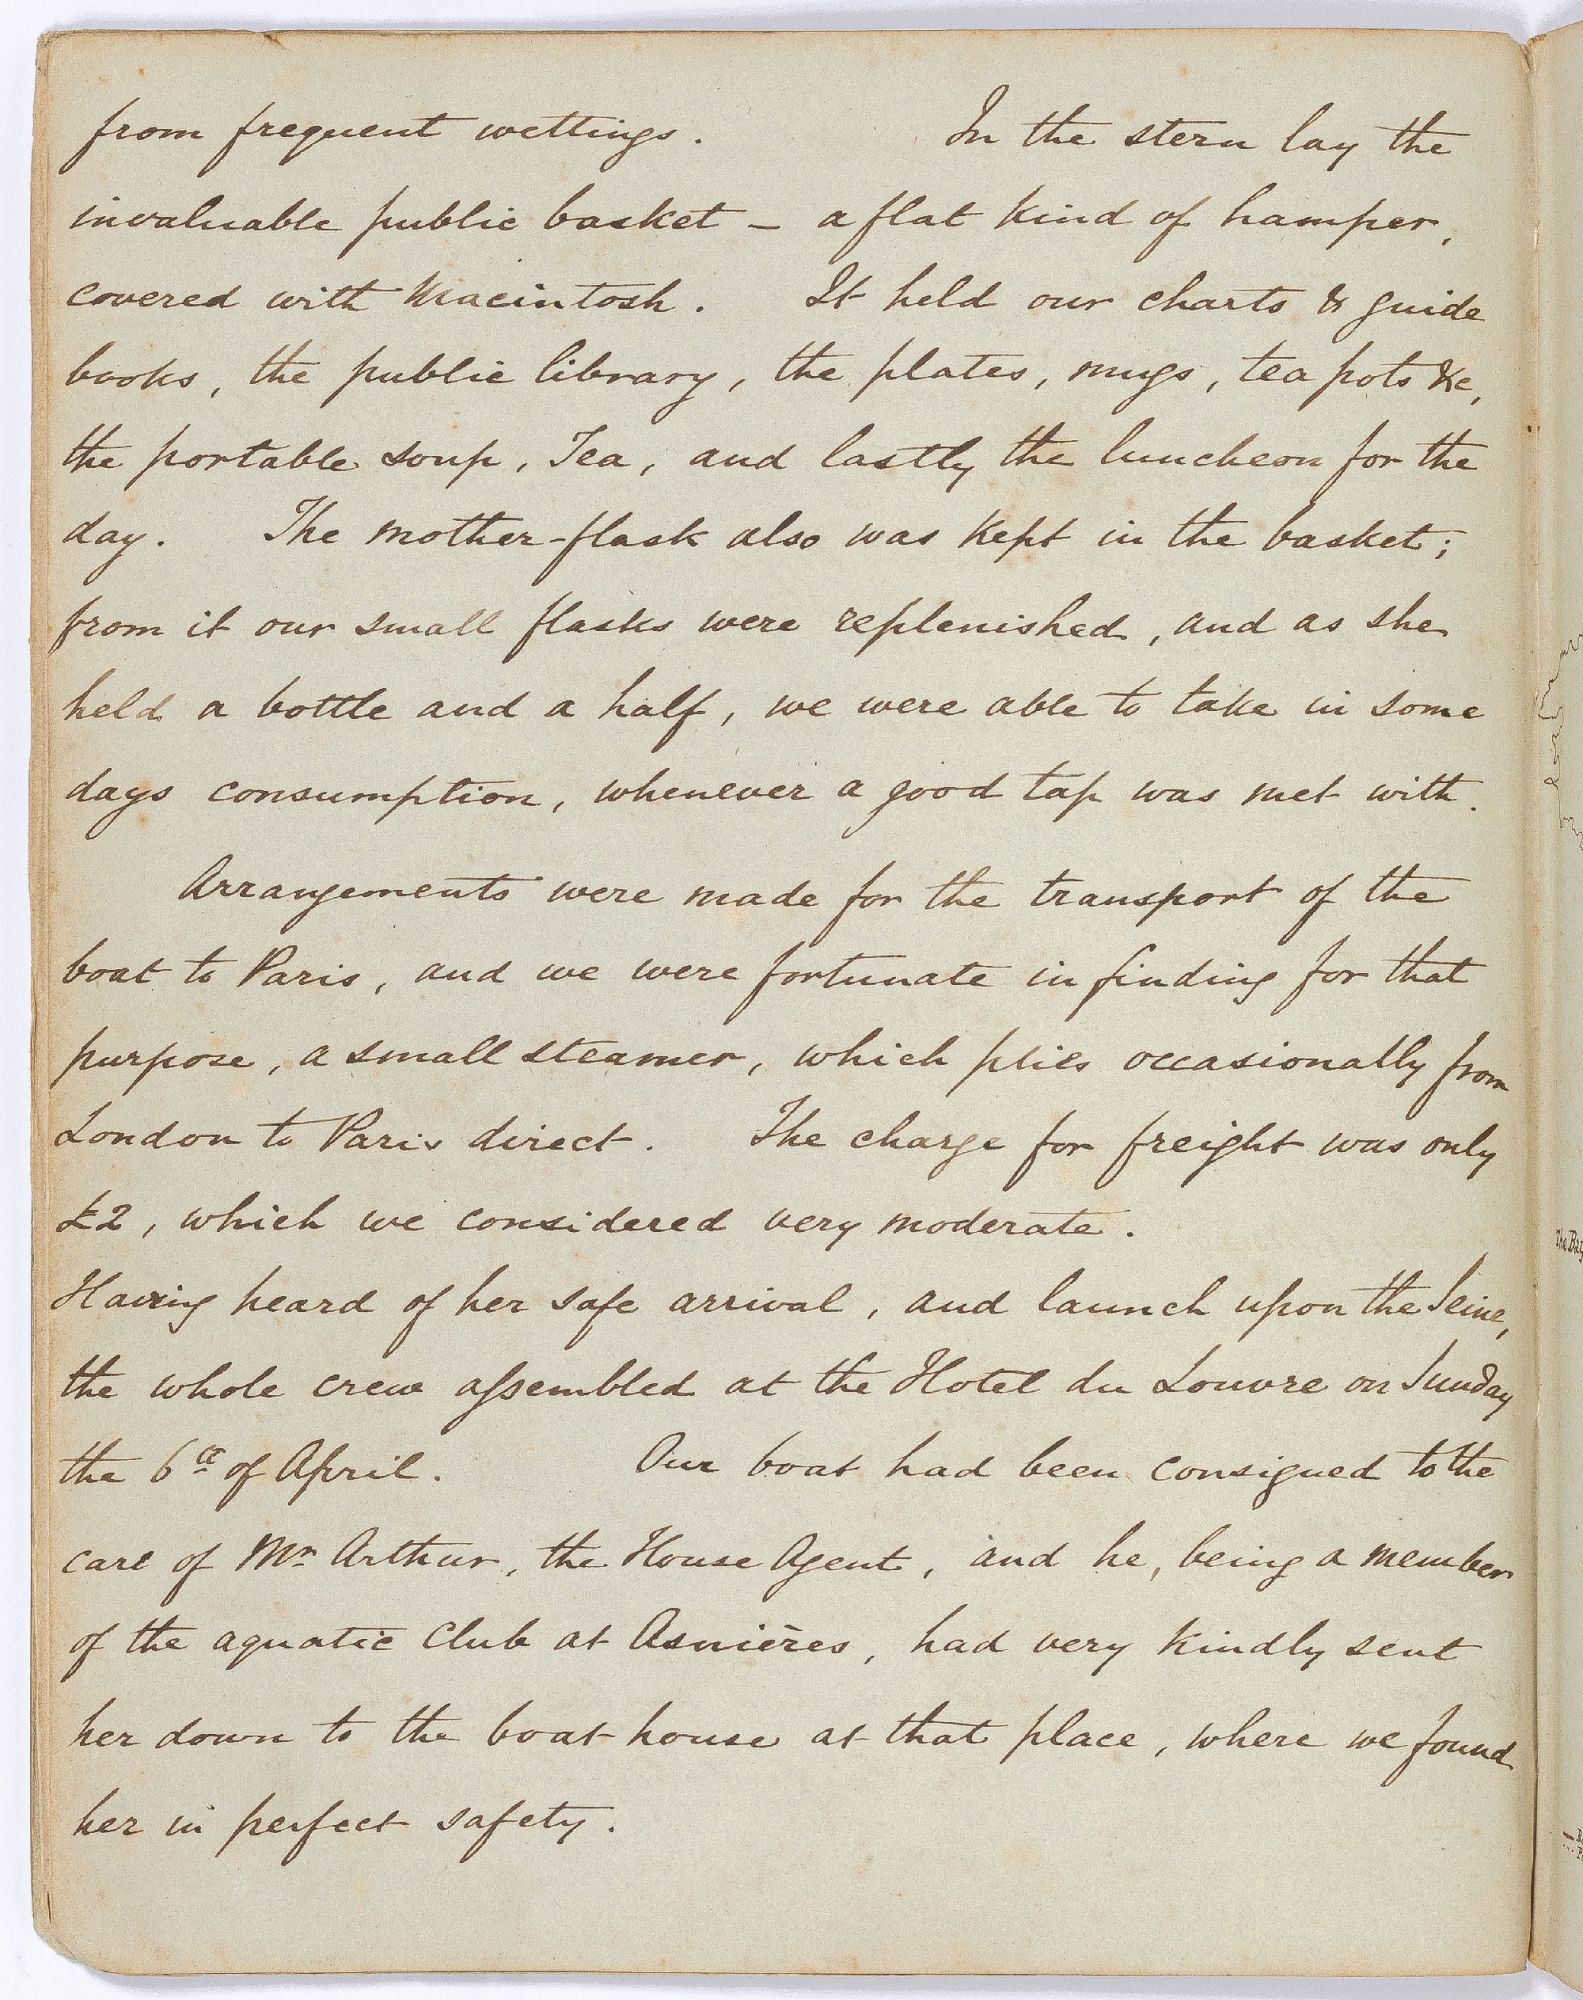 from frequent wettings. In the stern lay the
invaluable public basket – a flat kind of hamper,
covered with Macintosh. It held our charts & guide
books, the public library, the plates, mugs, tea pots &c,
the portable soup, Tea, and lastly the luncheon for the
day. The mother-flask also was kept in the basket;
from it our small flasks were replenished, and as she
held a bottle and a half, we were able to take in some
days consumption, whenever a good tap was met with.
Arrangements were made for the transport of the
boat to Paris, and we were fortunate in finding for that
purpose, a small steamer, which plies occasionally from
London to Paris direct. The charge for freight was only
£2, which we considered very moderate.
Having heard of her safe arrival, and launch upon the Seine,
the whole crew assembled at the Hotel du Louvre on Sunday
the 6th of April. Our boat had been consigned to the
care of Mr Arthur, the House Agent, and he, being a member
of the aquatic Club at Asnières, had very kindly sent
her down to the boat-house at that place, where we found
her in perfect safety.
The